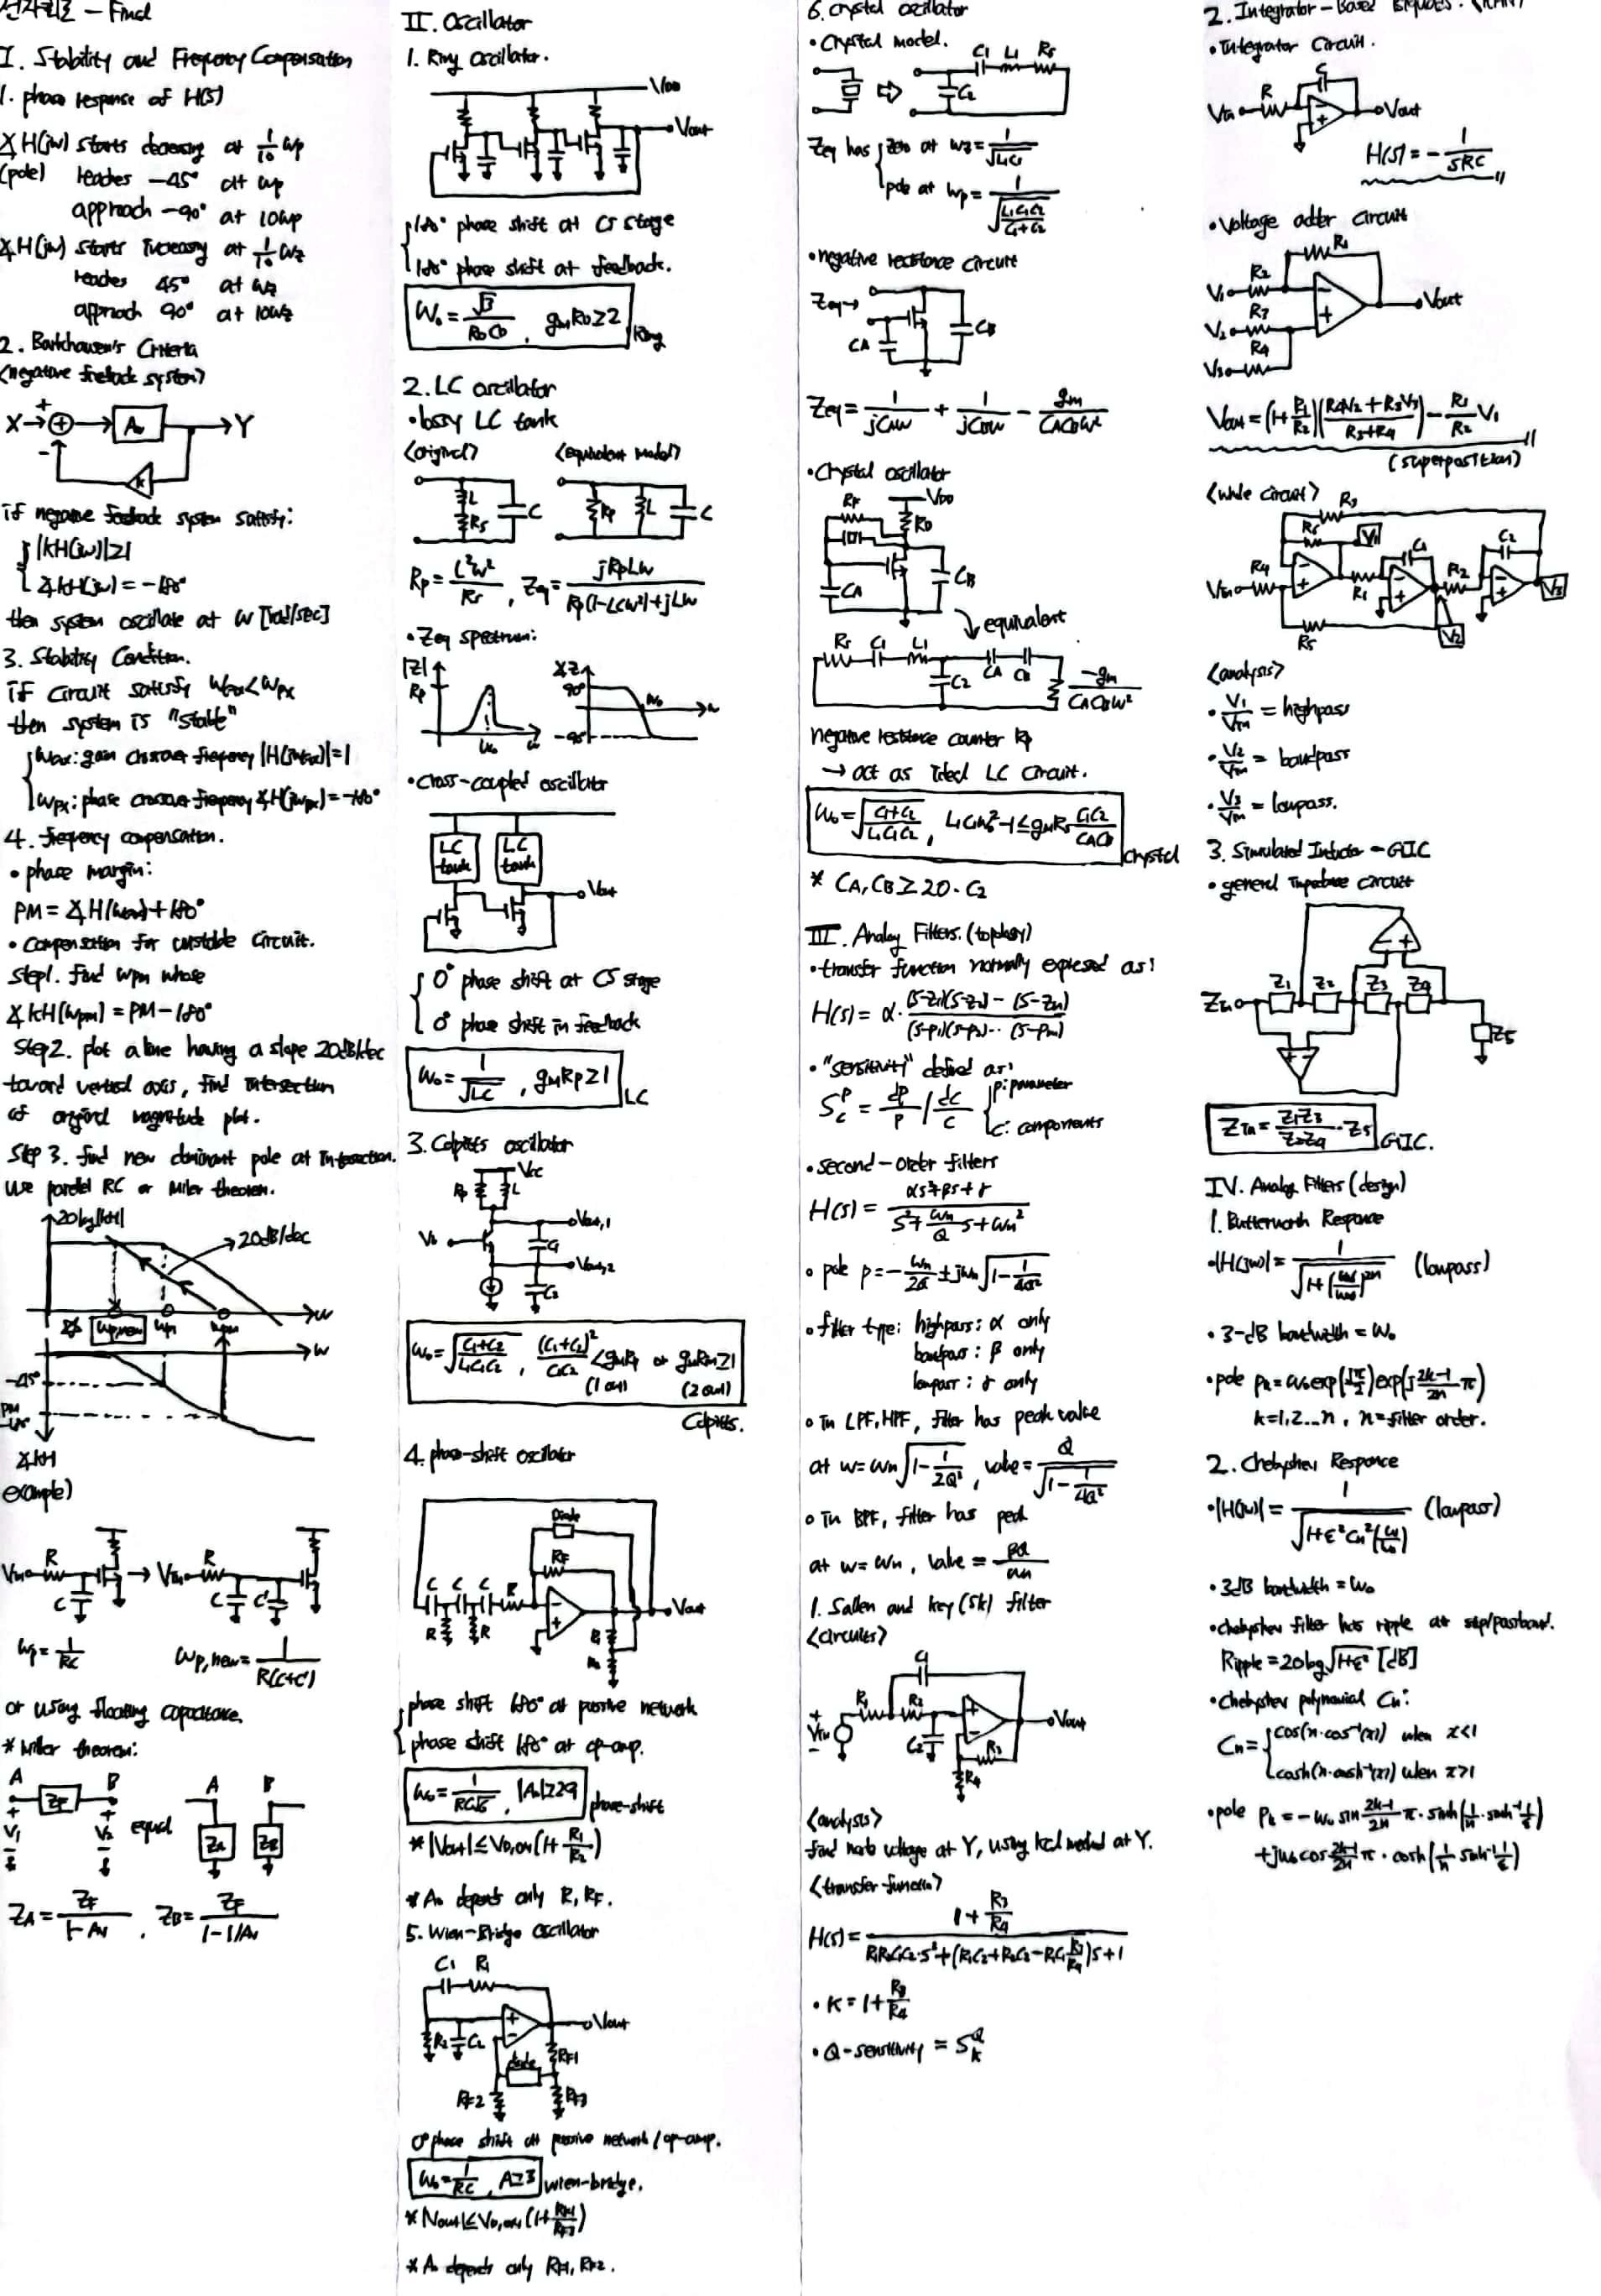 전자회로 - Final
I. Stability and Frequency Compensation
1. phase response of H(s)
∡H(jω) starts decreasing at 1/10 ωp
(pole) reaches -45° at ωp
approach -90° at 10ωp
∡H(jω) starts increasing at 1/10 ωz
reaches 45° at ωz
approach 90° at 10ωz
2. Barkhausen's Criteria
<negative feedback system>
X + - A0 Y
k
if negative feedback system satisfy:
|kH(jω)|≥1
∡kH(jω) = -180°
then system oscillate at ω [rad/sec]
3. Stability Condition.
if circuit satisfy ωGX<ωPX
then system is "stable"
ωGX: gain crossover frequency |H(jωGX)|=1
ωPX: phase crossover frequency ∡H(jωPX)=-180°
4. frequency compensation.
• phase margin:
PM = ∡H(ωGX)+180°
• compensation for unstable circuit.
Step1. find ωPM whose
∡kH(ωPM) = PM-180°
Step2. plot a line having a slope 20dB/dec
toward vertical axis, find intersection
of original magnitude plot.
Step 3. find new dominant pole at intersection.
use parallel RC or Miller theorem.
20log|kH|
20dB/dec
ωp,new ωp1 ωPM ω
ω
-45°
PM
-180°
∡kH
example)
Vin R C → Vin R C C'
ωp = 1/RC ωp,new = 1/R(C+C')
or using floating capacitance.
* Miller theorem:
A ZF B equal A B
+ V1 - + V2 - ZA ZB
ZA = ZF/1-Av , ZB = ZF/1-1/Av
II. Oscillator
1. Ring oscillator.
VDD
Vout
180° phase shift at CS stage
180° phase shift at feedback.
ω0 = √3/RDCD , gmRD≥2 Ring
2. LC oscillator
• lossy LC tank
<original> <equivalent model>
L Rs C Rp L C
Rp = L²ω²/Rs , Zeq = jRpLω/Rp(1-LCω²)+jLω
• Zeq spectrum:
|Z| Rp ω0 ω
∡Z 90° ω0 ω -90°
• cross-coupled oscillator
LC tank LC tank
Vout
0° phase shift at CS stage
0° phase shift in feedback
ω0 = 1/√LC , gmRp≥1 LC
3. Colpitts oscillator
VCC
Rp L
Vout,1
Vb C1
Vout,2
C2
ω0 = √C1+C2/L1C1C2 , (C1+C2)²/C1C2 <gmRp or gmRin≥1
(1 out) (2 out)
Colpitts.
4. phase-shift oscillator
Diode
RF
C C C R
R R Vout
R1
R2
phase shift 180° at passive network
phase shift 180° at op-amp.
ω0 = 1/RC√6 , |A0|≥29 phase-shift
* |Vout| ≤ VD,on(1+R1/R2)
* A0 depends only R, RF.
5. Wien-Bridge Oscillator
C1 R1
R2 C2 Vout
diode RF1
RF2 RF3
0° phase shift at passive network / op-amp.
ω0 = 1/RC , A≥3 wien-bridge.
* |Vout| ≤ VD,on(1+RF1/RF3)
* A0 depends only RF1, RF2.
6. crystal oscillator
• Crystal model.
C1 L1 Rs
C2
Zeq has zero at ωz = 1/√L1C1
pole at ωp = 1/√L1C1C2/C1+C2
• negative resistance circuit
Zeq→
CA CB
Zeq = 1/jCAω + 1/jCBω - gm/CACBω²
• Crystal oscillator
VDD
RF RD
CA CB
equivalent
Rs C1 L1
C2 CA CB -gm/CACBω²
negative resistance counter Rp
→ act as ideal LC circuit.
ω0 = √C1+C2/L1C1C2 , L1C1ω0²-1≤gmRs C1C2/CACB crystal
* CA, CB ≥ 20·C2
III. Analog Filters. (topology)
• transfer function normally expressed as:
H(s) = α·(s-z1)(s-z2)··(s-zn)/(s-p1)(s-p2)··(s-pm)
• "sensitivity" defined as:
S P C = dP/P / dC/C P: parameter
C: components
• second-order filters
H(s) = αs²+βs+γ/s²+ωn/Q s+ωn²
• pole p = -ωn/2Q ± jωn√1-1/4Q²
• filter type: highpass: α only
bandpass: β only
lowpass: γ only
• In LPF, HPF, filter has peak value
at ω = ωn√1-1/2Q² , value = Q/√1-1/4Q²
• In BPF, filter has peak
at ω = ωn , value = βQ/ωn
1. Sallen and key (SK) filter
<circuits>
C1
R1 R2
+ Vin - C2 Vout
R3
R4
<analysis>
find node voltage at Y, using kcl method at Y.
<transfer function>
H(s) = 1+R3/R4 / R1R2C1C2·s²+(R1C2+R2C2-R1C1R3/R4)s+1
• K = 1+R3/R4
• Q-sensitivity = S Q K
2. Integrator-Based Biquads.
• Integrator Circuit.
C
Vin R Vout
H(s) = -1/SRC
• Voltage adder circuit
R1
V1 R2
V2 R3 Vout
V3 R4
Vout = (1+R1/R2)(R4V2+R3V3/R3+R4) - R1/R2 V1
(superposition)
<whole circuit> R3
R6 V1 C1 C2
Vin R4 R1 R2 V3
R5 V2
<analysis>
• V1/Vin = highpass
• V2/Vin = bandpass
• V3/Vin = lowpass.
3. Simulated Inductor - GIC
• general impedance circuit
Zin Z1 Z2 Z3 Z4
Z5
Zin = Z1Z3/Z2Z4·Z5 GIC.
IV. Analog Filters (design)
1. Butterworth Response
• |H(jω)| = 1/√1+(ω/ω0)²ⁿ (lowpass)
• 3-dB bandwidth = ω0
• pole pk = ω0 exp(jπ/2) exp(j 2k-1/2n π)
k=1,2...n , n=filter order.
2. Chebyshev Response
• |H(jω)| = 1/√1+ε²Cn²(ω/ω0) (lowpass)
• 3dB bandwidth = ω0
• chebyshev filter has ripple at stop/passband.
Ripple = 20log√1+ε² [dB]
• Chebyshev polynomial Cn:
Cn = cos(n·cos⁻¹(x)) when x<1
cosh(n·cosh⁻¹(x)) when x>1
• pole pk = -ω0 sin 2k-1/2n π · sinh(1/n·sinh⁻¹1/ε)
+jω0 cos 2k-1/2n π · cosh(1/n sinh⁻¹1/ε)